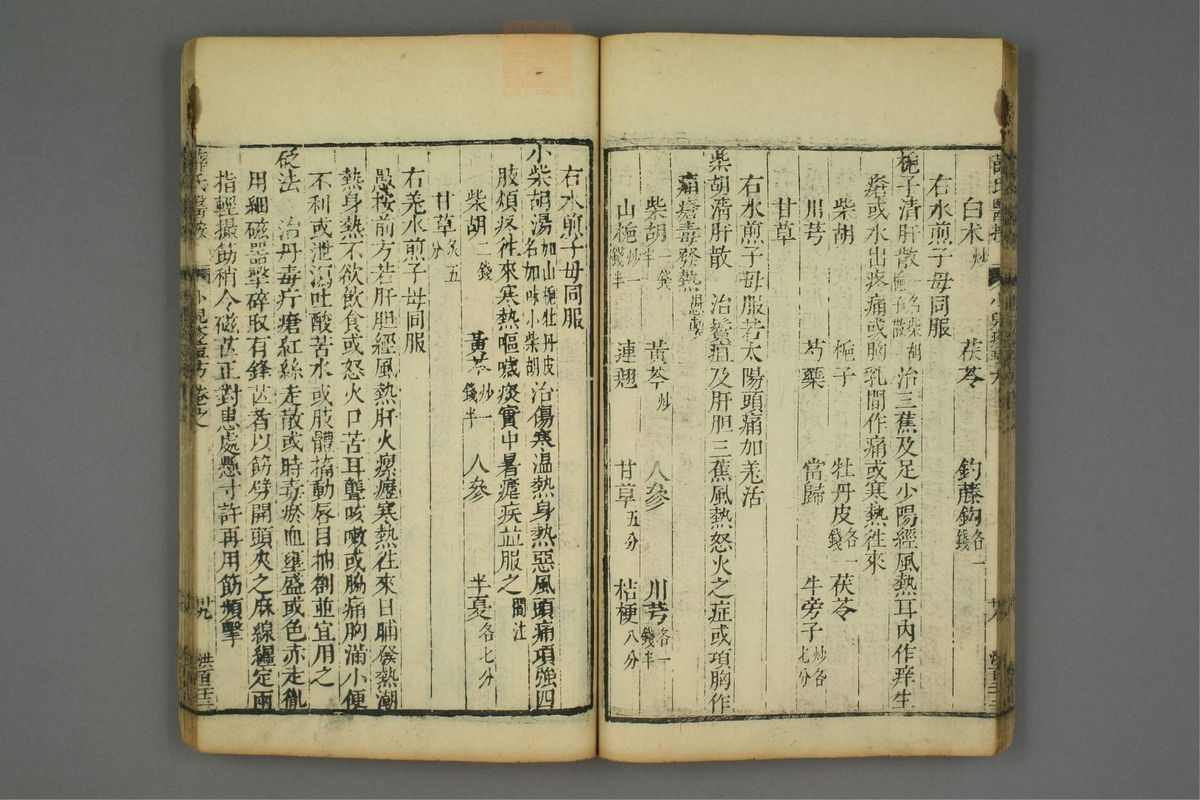 白朮炒　茯苓　釣藤鈎各一錢
右水煎子母同服
梔子清肝散一名柴胡梔子散　治三蕉及足少陽經風熱耳內作痒生
瘡或水出疼痛或胸乳間作痛或寒熱徃來
柴胡　梔子　牡丹皮各一錢　茯苓
川芎　芍藥　當歸　牛旁子炒各七分
甘草
右水煎子母服若太陽頭痛加羌活
柴胡清肝散　治鬢疽及肝胆三蕉風熱怒火之症或項胸作
痛瘡毒發熱
柴胡一錢半　黃芩炒　人參　川芎各一錢半
山梔炒一錢半　連翹　甘草五分　桔梗八分
右水煎子母同服
小柴胡湯加山梔牡丹皮名加味小柴胡　治傷寒温熱身熱惡風頭痛項強四
肢煩疼徃來寒熱嘔噦痰實中暑瘧疾並服之
柴胡二錢　黃芩炒一錢半　人參　半夏各七分
甘草炙五分
右羌水煎子母同服
愚按前方若肝胆經風熱肝火瘰癧寒熱徃來日晡發熱潮
熱身熱不欲飲食或怒火口苦耳聾咳嗽或脇痛胸滿小便
不利或泄瀉吐酸苦水或肢體搐動唇目抽劄並宜用之
砭法　治丹毒疔瘡紅絲走散或時毒瘀血壅盛或色赤走彻
用細磁器擊碎取有鋒芒者以筋劈開頭夾之麻線纏定兩
指輕撮筋稍令磁芒正對患處懸寸許再用筋頻擊